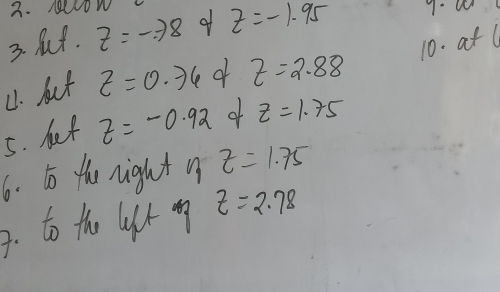 2. below
3. bet. Z = -.78 & Z = -1.95
4. bet Z = 0.76 & Z = 2.88
5. bet Z = -0.92 & Z = 1.75
6. to the right of Z = 1.75
7. to the left of Z = 2.78
9. at
10. at